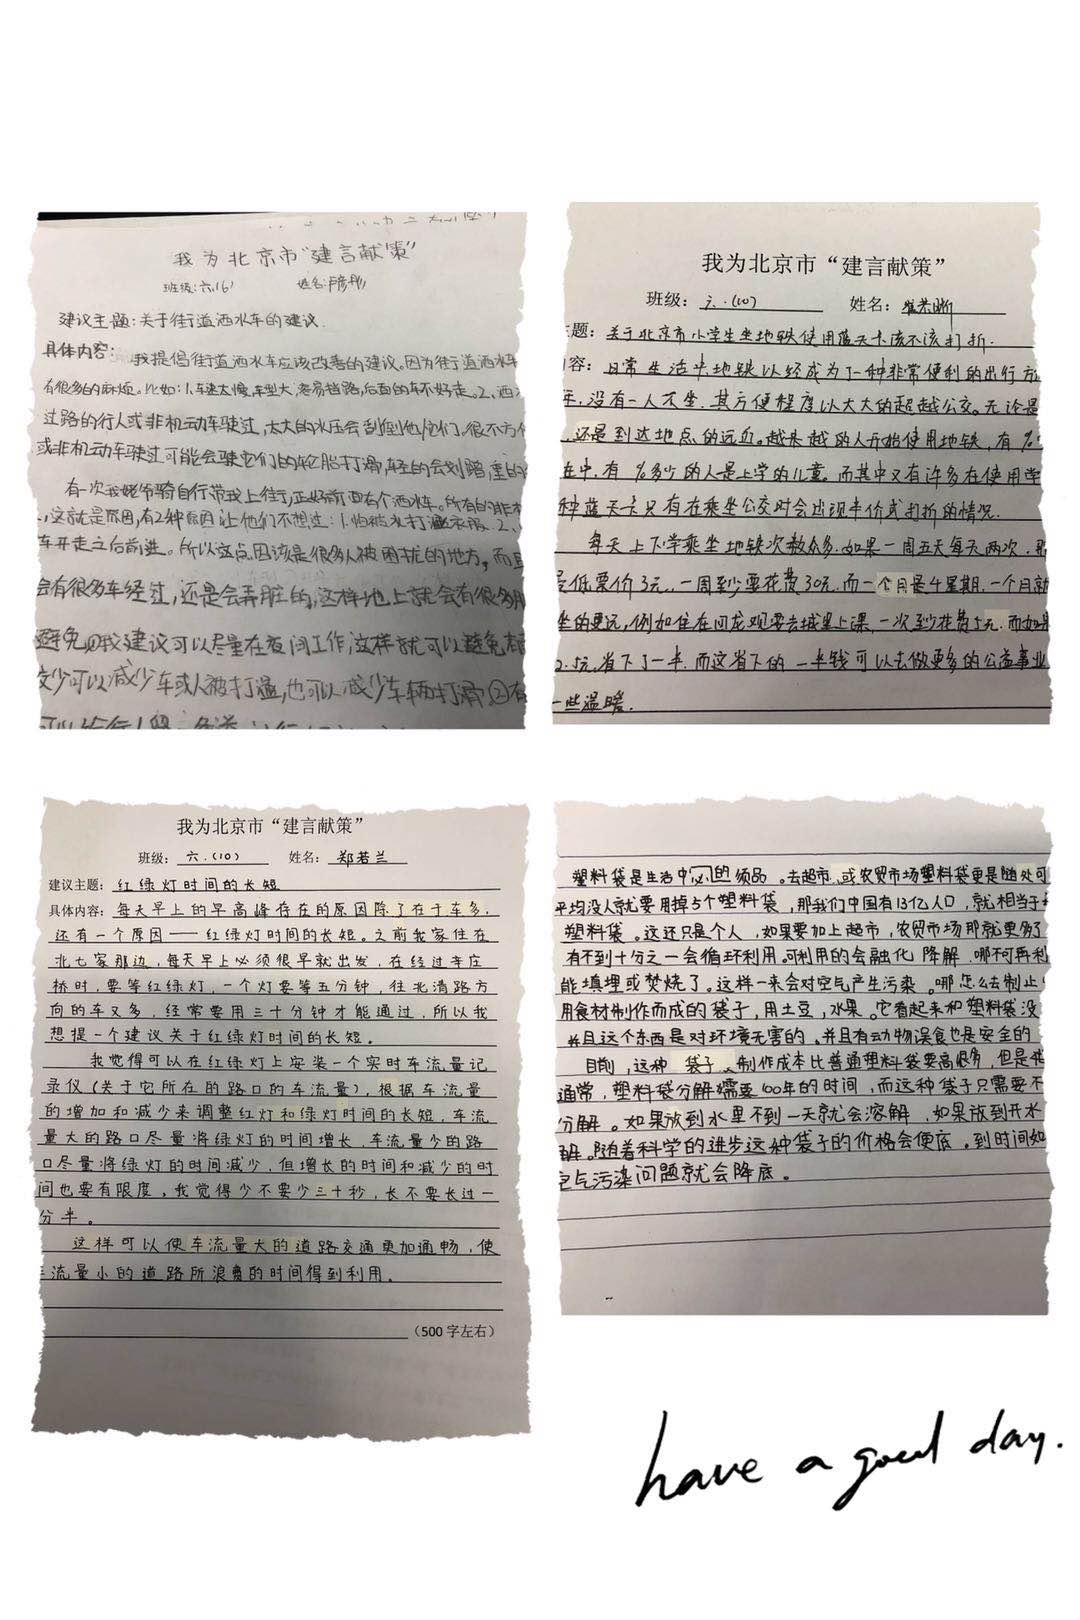 我为北京市“建言献策”
班级:六.(6) 姓名:
建议主题:关于街道洒水车的建议.
具体内容: 我提倡街道洒水车应该改善的建议。因为街道洒水车
有很多的麻烦。比如:1.车速太慢,车型大,容易挡路,后面的车不好走。2.洒
过路的行人或非机动车驶过,太大的水压会刮倒他们,很不方
或非机动车驶过可能会驶它们的轮胎打滑,轻的会划蹭,重的
有一次我姥爷骑自行带我上街,正好前面有个洒水车。所有的
这就是原因,有2种原因让他们不想过:1.怕被水打湿衣服.2、
车开走之后前进。所以这点因该是很多人被困扰的地方,而且
会有很多车经过,还是会弄脏的,这样地上就会有很多
避免,①我建议可以尽量在夜间工作,这样就可以避免
可以减少车或人被打湿,也可以减少车辆打滑②有
我为北京市“建言献策”
班级: 六.(10) 姓名:
主题: 关于北京市小学生坐地铁使用蓝天卡该不该打折.
内容: 日常生活中,地铁以经成为了一种非常便利的出行方
没有一人不坐,其方便程度以大大的超越公交。无论是
还是到达地点的远近。越来越的人开始使用地铁,有%
在中,有%多少的人是上学的儿童。而其中又有许多在使用学
种蓝天卡只有在乘坐公交时会出现半价式打折的情况.
每天上下学乘坐地铁次数众多.如果一周五天每天两次,那
是低票价3元,一周至少要花费30元.而一个月是4星期,一个月就
坐的更远,例如住在回龙观要去城里上课,一次至少花费5元.而如果
2.5元,省下了一半.而这省下的一半钱可以去做更多的公益事业
一些温暖.
我为北京市“建言献策”
班级: 六.(10) 姓名: 郑若兰
建议主题: 红绿灯时间的长短
具体内容: 每天早上的早高峰存在的原因除了在于车多,
还有一个原因——红绿灯时间的长短。之前我家住在
北七家那边,每天早上必须很早就出发,在经过辛庄
桥时,要等红绿灯,一个灯要等五分钟,往北清路方
向的车又多,经常要用三十分钟才能通过,所以我
想提一个建议关于红绿灯时间的长短。
我觉得可以在红绿灯上安装一个实时车流量记
录仪(关于它所在的路口的车流量),根据车流量
的增加和减少来调整红灯和绿灯时间的长短,车流
量大的路口尽量将绿灯的时间增长,车流量少的路
口尽量将绿灯的时间减少,但增长的时间和减少的时
间也要有限度,我觉得少不要少三十秒,长不要长过一
分半。
这样可以使车流量大的道路交通更加通畅,使
流量小的道路所浪费的时间得到利用。
(500字左右)
塑料袋是生活中必的须品。去超市,或农贸市场塑料袋更是随处可
平均没人就要用掉5个塑料袋,那我们中国有13亿人口,就相当于
塑料袋。这还只是个人,如果要加上超市,农贸市场那就更多了
有不到十分之一会循环利用。可利用的会融化降解,哪不可再利
能填埋或焚烧了。这样一来会对空气产生污染。哪怎么去制止
用食材制作而成的袋子,用土豆,水果。它看起来和塑料袋没
并且这个东西是对环境无害的。并且有动物误食也是安全的
目前,这种袋子,制作成本比普通塑料袋要高很多,但是
通常,塑料袋分解需要100年的时间,而这种袋子只需要不
分解。如果放到水里不到一天就会溶解,如果放到开水
解。随着科学的进步这种袋子的价格会便底。到时间如
空气污染问题就会降底。
have a good day.